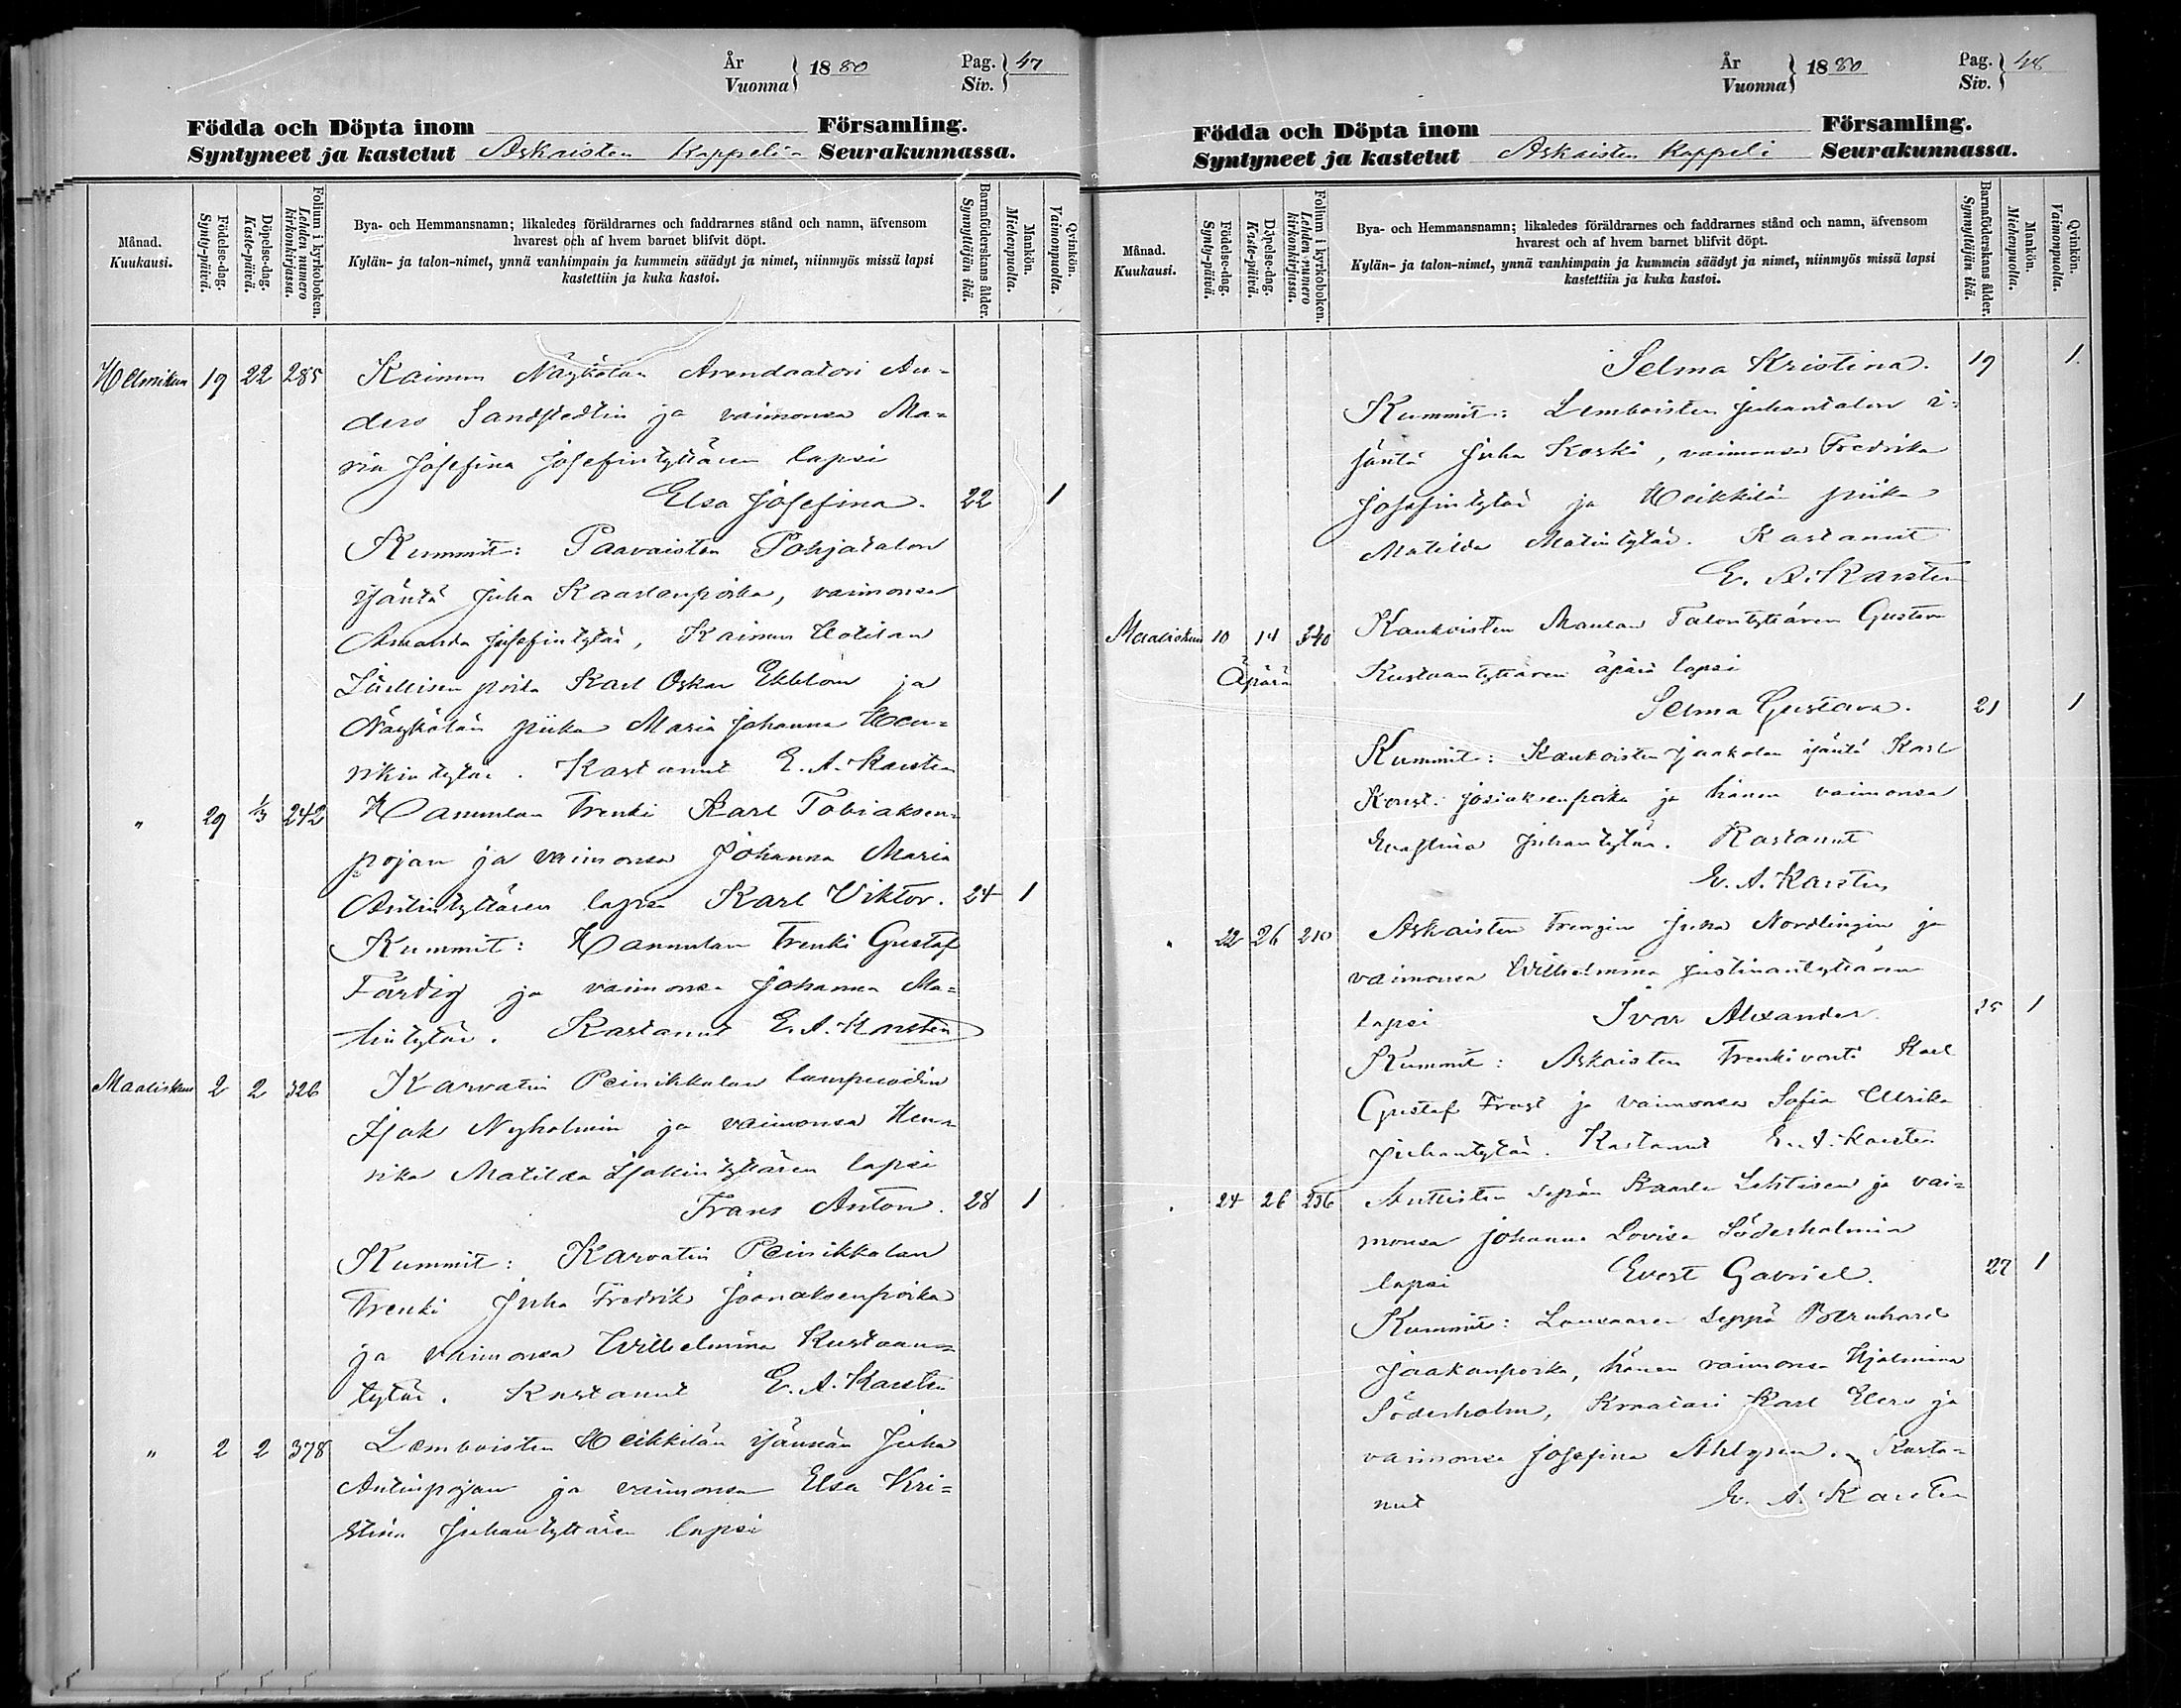 År
Vuonna } 1880
Pag.
Siv. } 47
Födda och Döpta inom Församling.
Syntyneet ja kastetut Askaisten Kappelin Seurakunnassa.
Månad.
Kuukausi.
Födelse-dag.
Synty-päivä.
Döpelse-dag.
Kaste-päivä.
Folium i kyrkoboken.
Lehden numero
kirkonkirjassa.
Bya- och Hemmansnamn; likaledes föräldrarnes och faddrarnes stånd och namn, äfvensom
hvarest och af hvem barnet blifvit döpt.
Kylän- ja talon-nimet, ynnä vanhimpain ja kummein säädyt ja nimet, niinmyös missä lapsi
kastettiin ja kuka kastoi.
Barnaföderskans ålder.
Synnyttäjän ikä.
Mankön.
Miehenpuolia.
Qvinkön.
Vaimonpuolia.
Helmikuu 19 22 285 Kaimun Näykölän Arendaatori An-
ders Sandstedtin ja vaimonsa Ma-
ria Josefina Josefintyttären lapsi
Elsa Josefina. 22 1
Kummit: Paavaisten Pohjatalon
isäntä Juha Kaarlenpoika, vaimonsa
Amanda Josefintytär, Kaimun
poika Karl Oskar Ekblom ja
Näykölän piika Maria Johanna Hen-
rikintytär. Kastanut E. A. Karsten
" 29 1/3 242 Hannulan trenki Karl Tobiaksen-
pojan ja vaimonsa Johanna Maria
Antintyttären lapsi Karl Viktor. 24 1
Kummit: Hannulan trenki Gustaf
Färdig ja vaimonsa Johanna Ma-
tintytär. Kastanut E. A. Karsten
Maaliskuu 2 2 326 Karvatin Peinikkalan lampuodin
Isak Nyholmin ja vaimonsa Hen-
rika Matilda Isakintyttären lapsi
Frans Anton. 28 1
Kummit: Karvatin Peinikkalan
trenki Juha Fredrik Joonaksenpoika
ja vaimonsa Wilhelmina Kustaan-
tytär. Kastanut E. A. Karsten
" 2 2 378 Lemboisten Heikkilän isännän Juha
Antinpojan ja vaimonsa Elsa Kri-
stina Juhantyttären lapsi
År
Vuonna } 1880
Pag.
Siv. } 48
Födda och Döpta inom Församling.
Syntyneet ja kastetut Askaisten Kappeli Seurakunnassa.
Månad.
Kuukausi.
Födelse-dag.
Synty-päivä.
Döpelse-dag.
Kaste-päivä.
Folium i kyrkoboken.
Lehden numero
kirkonkirjassa.
Bya- och Hemmansnamn; likaledes föräldrarnes och faddrarnes stånd och namn, äfvensom
hvarest och af hvem barnet blifvit döpt.
Kylän- ja talon-nimet, ynnä vanhimpain ja kummein säädyt ja nimet, niinmyös missä lapsi
kastettiin ja kuka kastoi.
Barnaföderskans ålder.
Synnyttäjän ikä.
Mankön.
Miehenpuolia.
Qvinkön.
Vaimonpuolia.
Selma Kristina. 19 1.
Kummit: Lemboisten Juhantalon i-
säntä Juha Koski, vaimonsa Fredrika
Josefintytär ja Heikkilän piika
Matilda Matintytär. Kastanut
E. A. Karsten
Maaliskuu 10 14 340 Kankoisten Maulan Talontyttären Gustava
Äpärä Kustaantyttären äpärä lapsi
Selma Gustava. 21 1
Kummit: Kankoisten Jaakolan isäntä Karl
Konst. Josiaksenpoika ja hänen vaimonsa
Evastina Juhantytär. Kastanut
E. A. Karsten
" 22 26 210 Askaisten trengin Juha Nordlingin ja
vaimonsa Wilhelmina Justinantyttären
lapsi Ivar Alexander. 35 1
Kummit: Askaisten trenkivouti Karl
Gustaf Frost ja vaimonsa Sofia Ulrika
Juhantytär. Kastanut E. A. Karsten
" 24 26 236 Auttisten sepän Kaarle Lehtisen ja vai-
monsa Johanna Lovisa Söderholmin
lapsi Evert Gabriel. 27 1
Kummit: Lousaaren Seppä Bernhard
Jaakonpoika, hänen vaimonsa Hjalmina
Söderholm, Kraatari Karl Elers ja
vaimonsa Josefina Ahlgren. Kasta-
nut E. A. Karsten